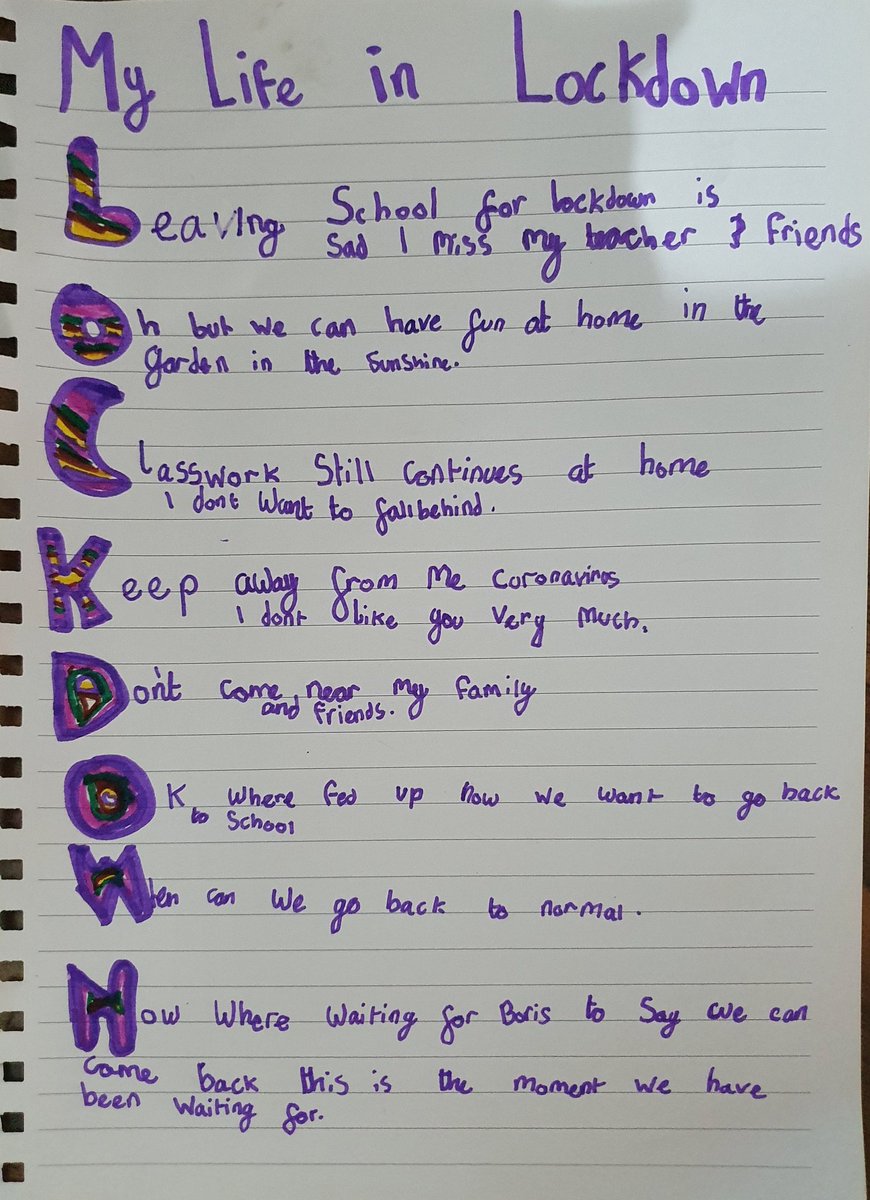 My Life in Lockdown
Leaving School for lockdown is
sad I miss my teacher & friends
Oh but we can have fun at home in the
garden in the sunshine.
Classwork Still continues at home
I dont want to fall behind.
Keep away from me coronavirus
I dont like you very much.
Don't come near my family
and friends.
OK where fed up now we want to go back
to School
When can we go back to normal.
Now where waiting for Boris to say we can
come back this is the moment we have
been waiting for.